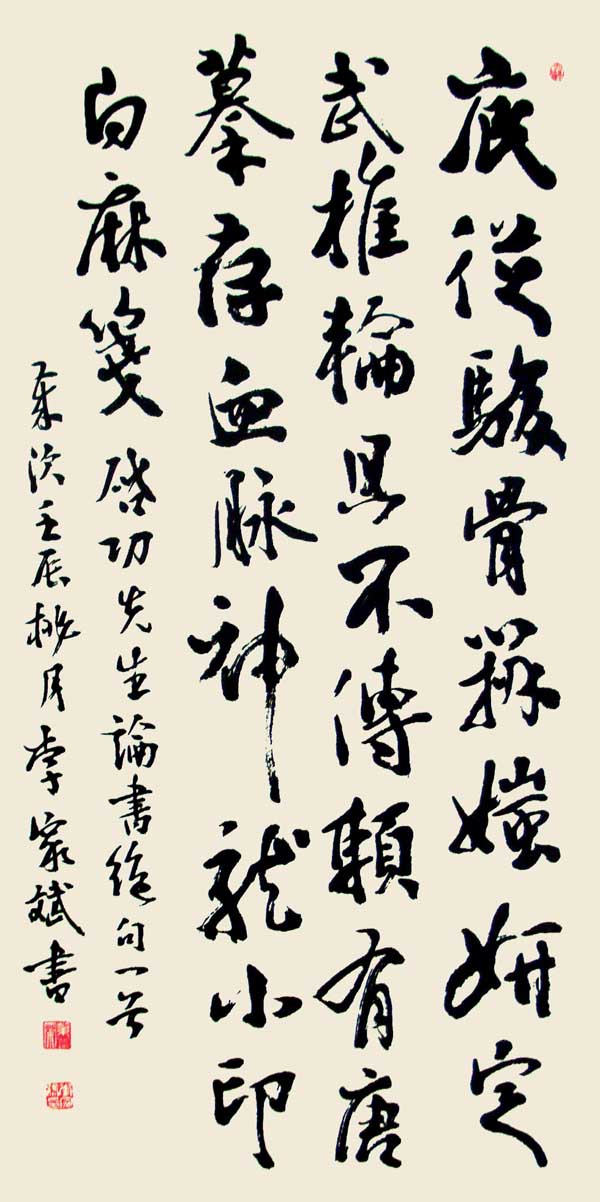 底從駿骨辨媸妍定
武椎輪且不傳賴有唐
摹存血脉神龍小印
白麻箋 啓功先生論書絕句一首
歲次壬辰桃月李家斌書